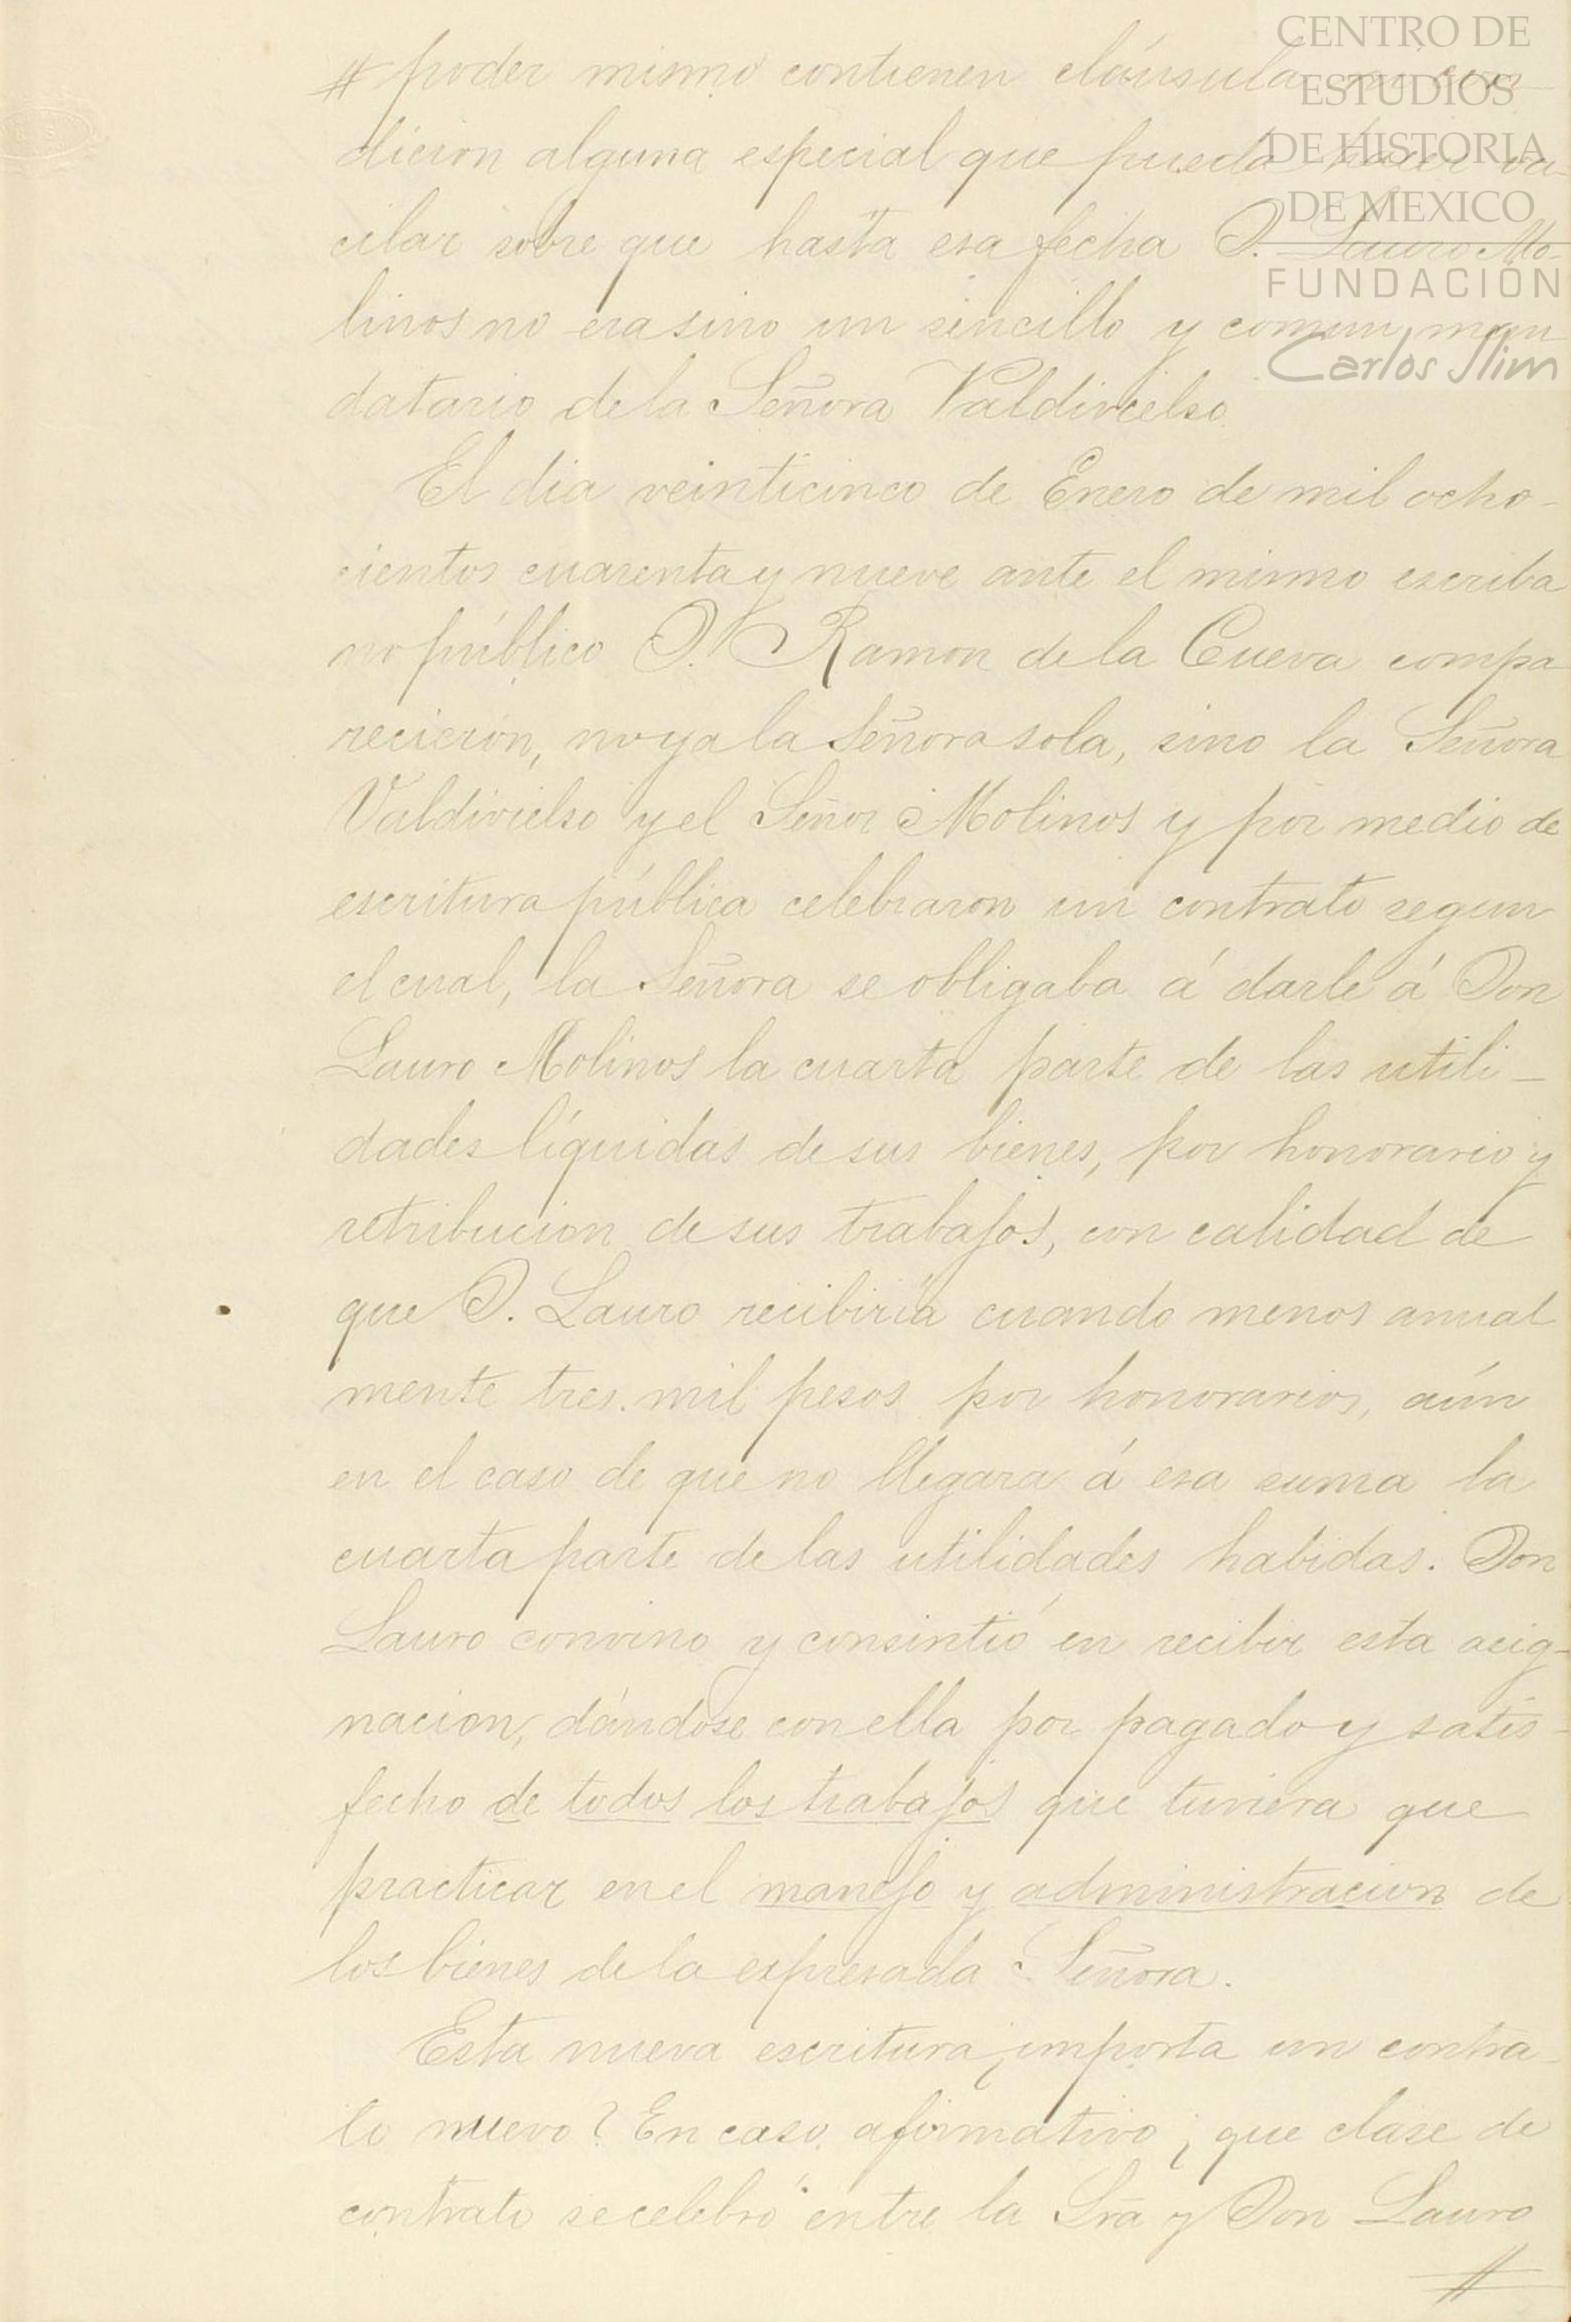 CENTRO DE
ESTUDIOS
DE HISTORIA
DE MEXICO
FUNDACIÓN
Carlos Slim
# poder mismo contienen cláusula ni con
dicion alguna especial que pueda hacer va-
cilar sobre que hasta esa fecha D. Lauro Mo-
linos no era sino un sencillo y comun man
datario de la Señora Valdivielso.
El dia veinticinco de Enero de mil ocho-
cientos cuarenta y nueve ante el mismo escriba
no público D. Ramon de la Cueva compa
recieron, no ya la Señora sola, sino la Señora
Valdivielso y el Señor Molinos y por medio de
escritura pública celebraron un contrato segun
el cual, la Señora se obligaba á darle á Don
Lauro Molinos la cuarta parte de las utili-
dades líquidas de sus bienes, por honorario y
retribucion de sus trabajos, con calidad de
que D. Lauro recibiría cuando menos anual
mente tres mil pesos por honorarios, aún
en el caso de que no llegara á esa suma la
cuarta parte de las utilidades habidas. Don
Lauro convino y consintió en recibir esta asig-
nacion, dándose con ella por pagado y satis-
fecho de todos los trabajos que tuviera que
practicar en el manejo y administracion de
los bienes de la expresada Señora.
Esta nueva escritura ¿importa un contra-
to nuevo? En caso afirmativo ¿que clase de
contrato se celebró entre la Sra y Don Lauro
#